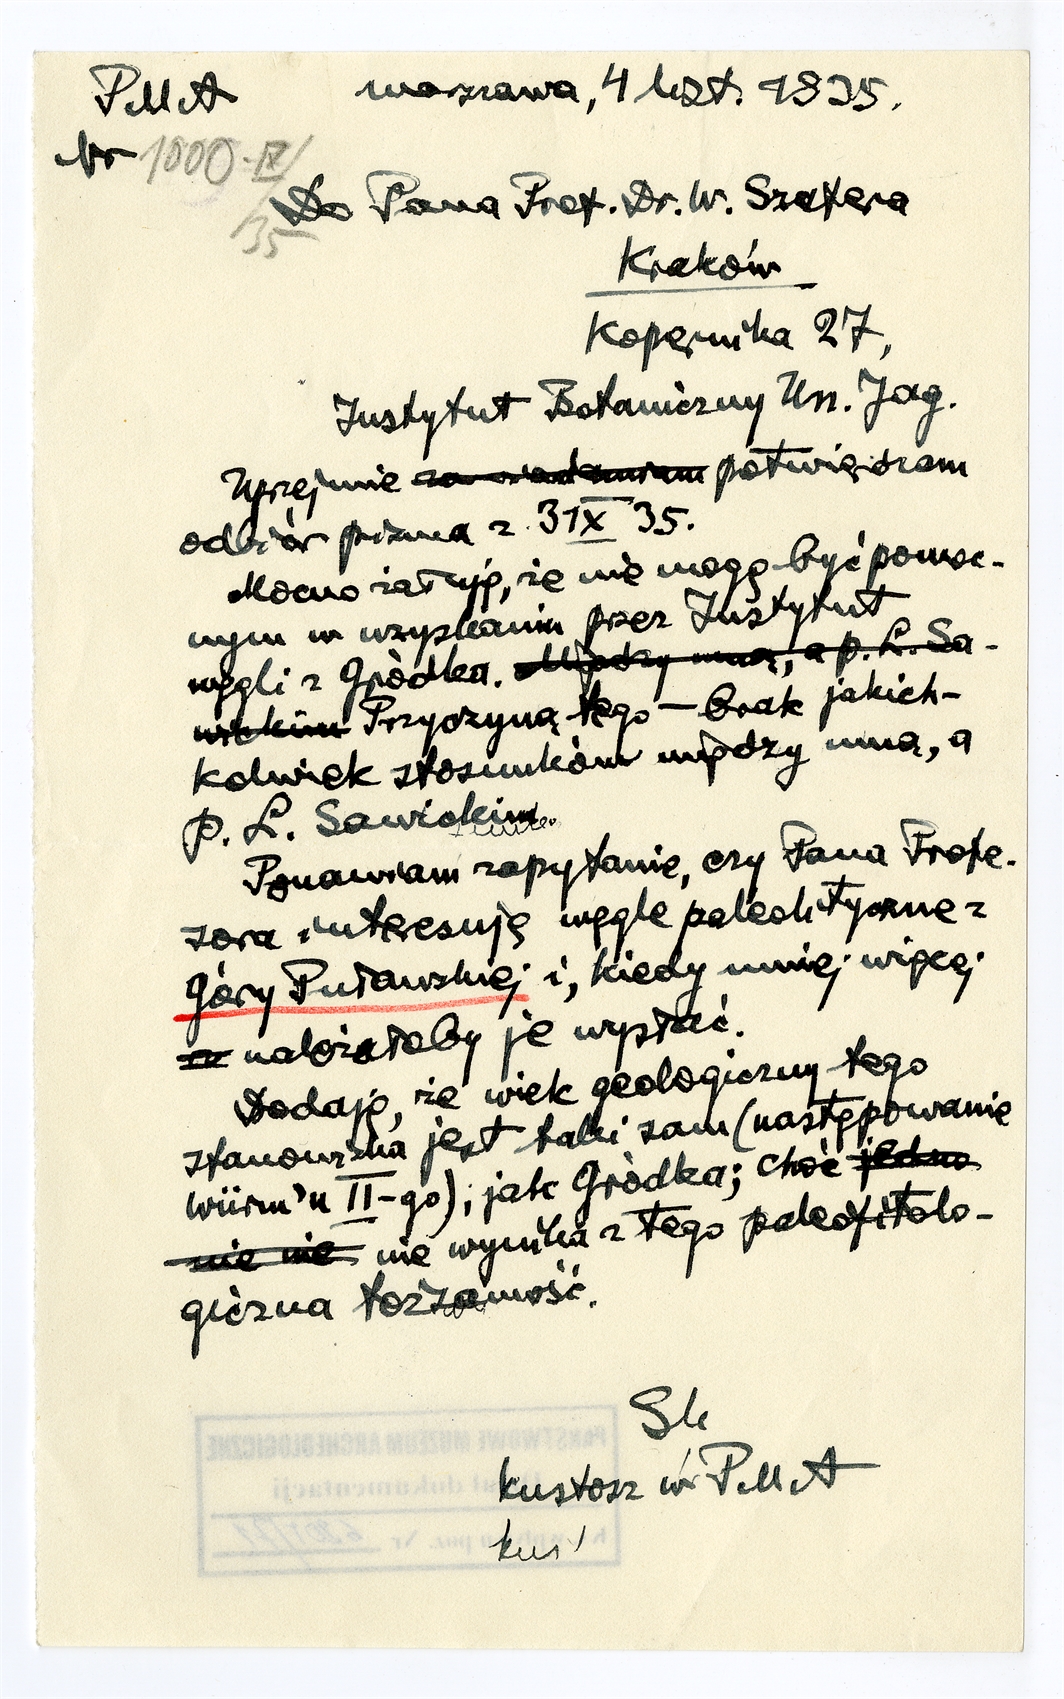 PMA Warszawa, 4 list. 1935.
Nr 1000-IX/35
Do Pana Prof. Dr. W. Szafera
Kraków
Kopernika 27,
Instytut Botaniczny Un. Jag.
Uprzejmie zawiadamiam potwierdzam
odbiór pisma z 31 X 35.
Mocno żałuję, że nie mogę być pomoc-
nym w uzyskaniu przez Instytut
węgli z Gródka. Między mną, a p. L. Sa-
wickim Przyczyną tego – brak jakich-
kolwiek stosunków między mną, a
p. L. Sawickim.
Ponawiam zapytanie, czy Pana Profe-
sora interesują węgle paleolityczne z
Góry Puławskiej i, kiedy mniej więcej
należałoby je wysłać.
Dodaję, że wiek geologiczny tego
stanowiska jest taki sam (następowanie
Würm'u II-go), jak Gródka; choć jedno
nie nie nie wynika z tego paleofitolo-
giczna tożsamość.
SK
kustosz w PMA
kus
PAŃSTWOWE MUZEUM ARCHEOLOGICZNE
Dział dokumentacji